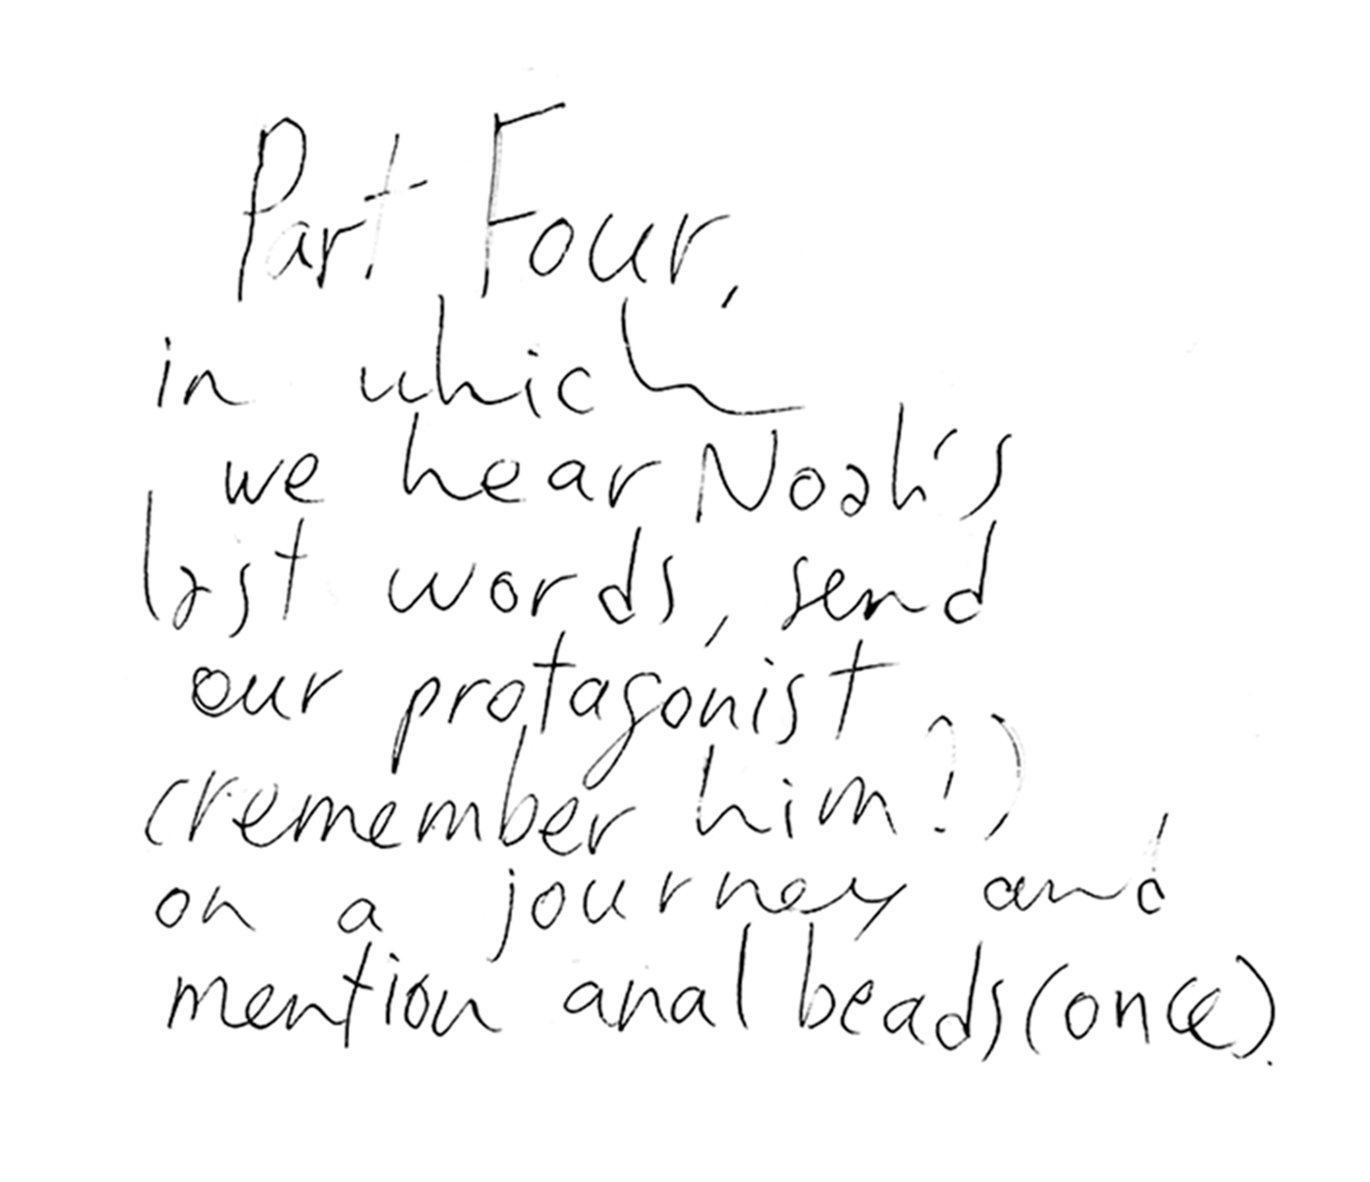 Part Four,
in which
we hear Noah's
last words, send
our protagonist
(remember him?)
on a journey and
mention anal beads (once).